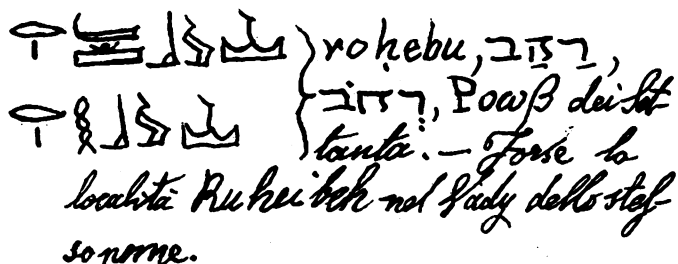 roḥebu, רַחַב,
רְחֹב, Ροωβ dei Set-
tanta. — Forse la
località Ruheibeh nel Vady dello stes-
so nome.